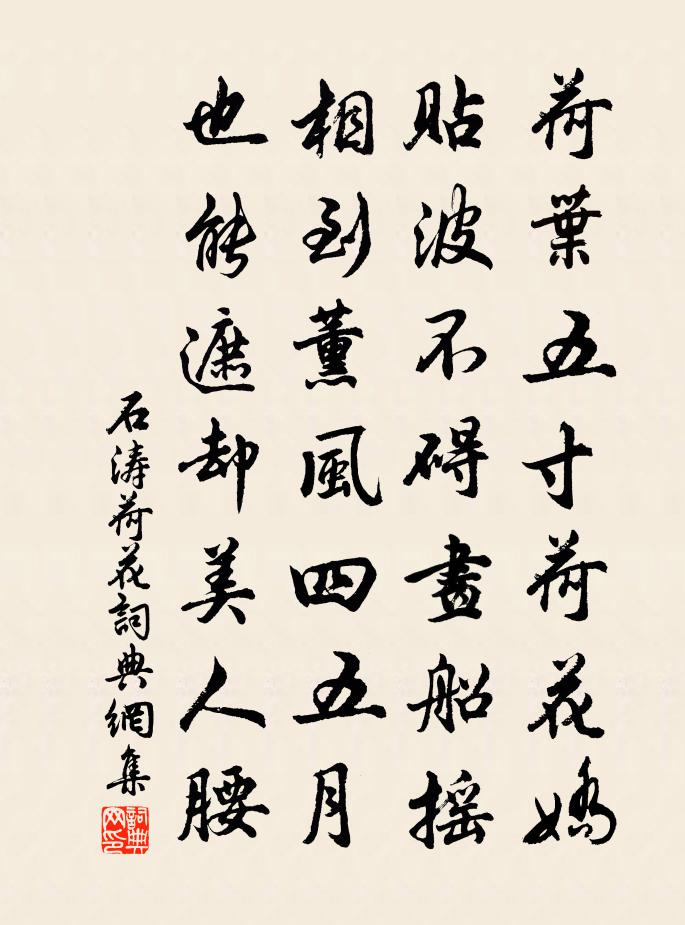 荷葉五寸荷花嬌
貼波不碍畫船摇
相到薰風四五月
也能遮却美人腰
石濤荷花詞典網集
詞典网印